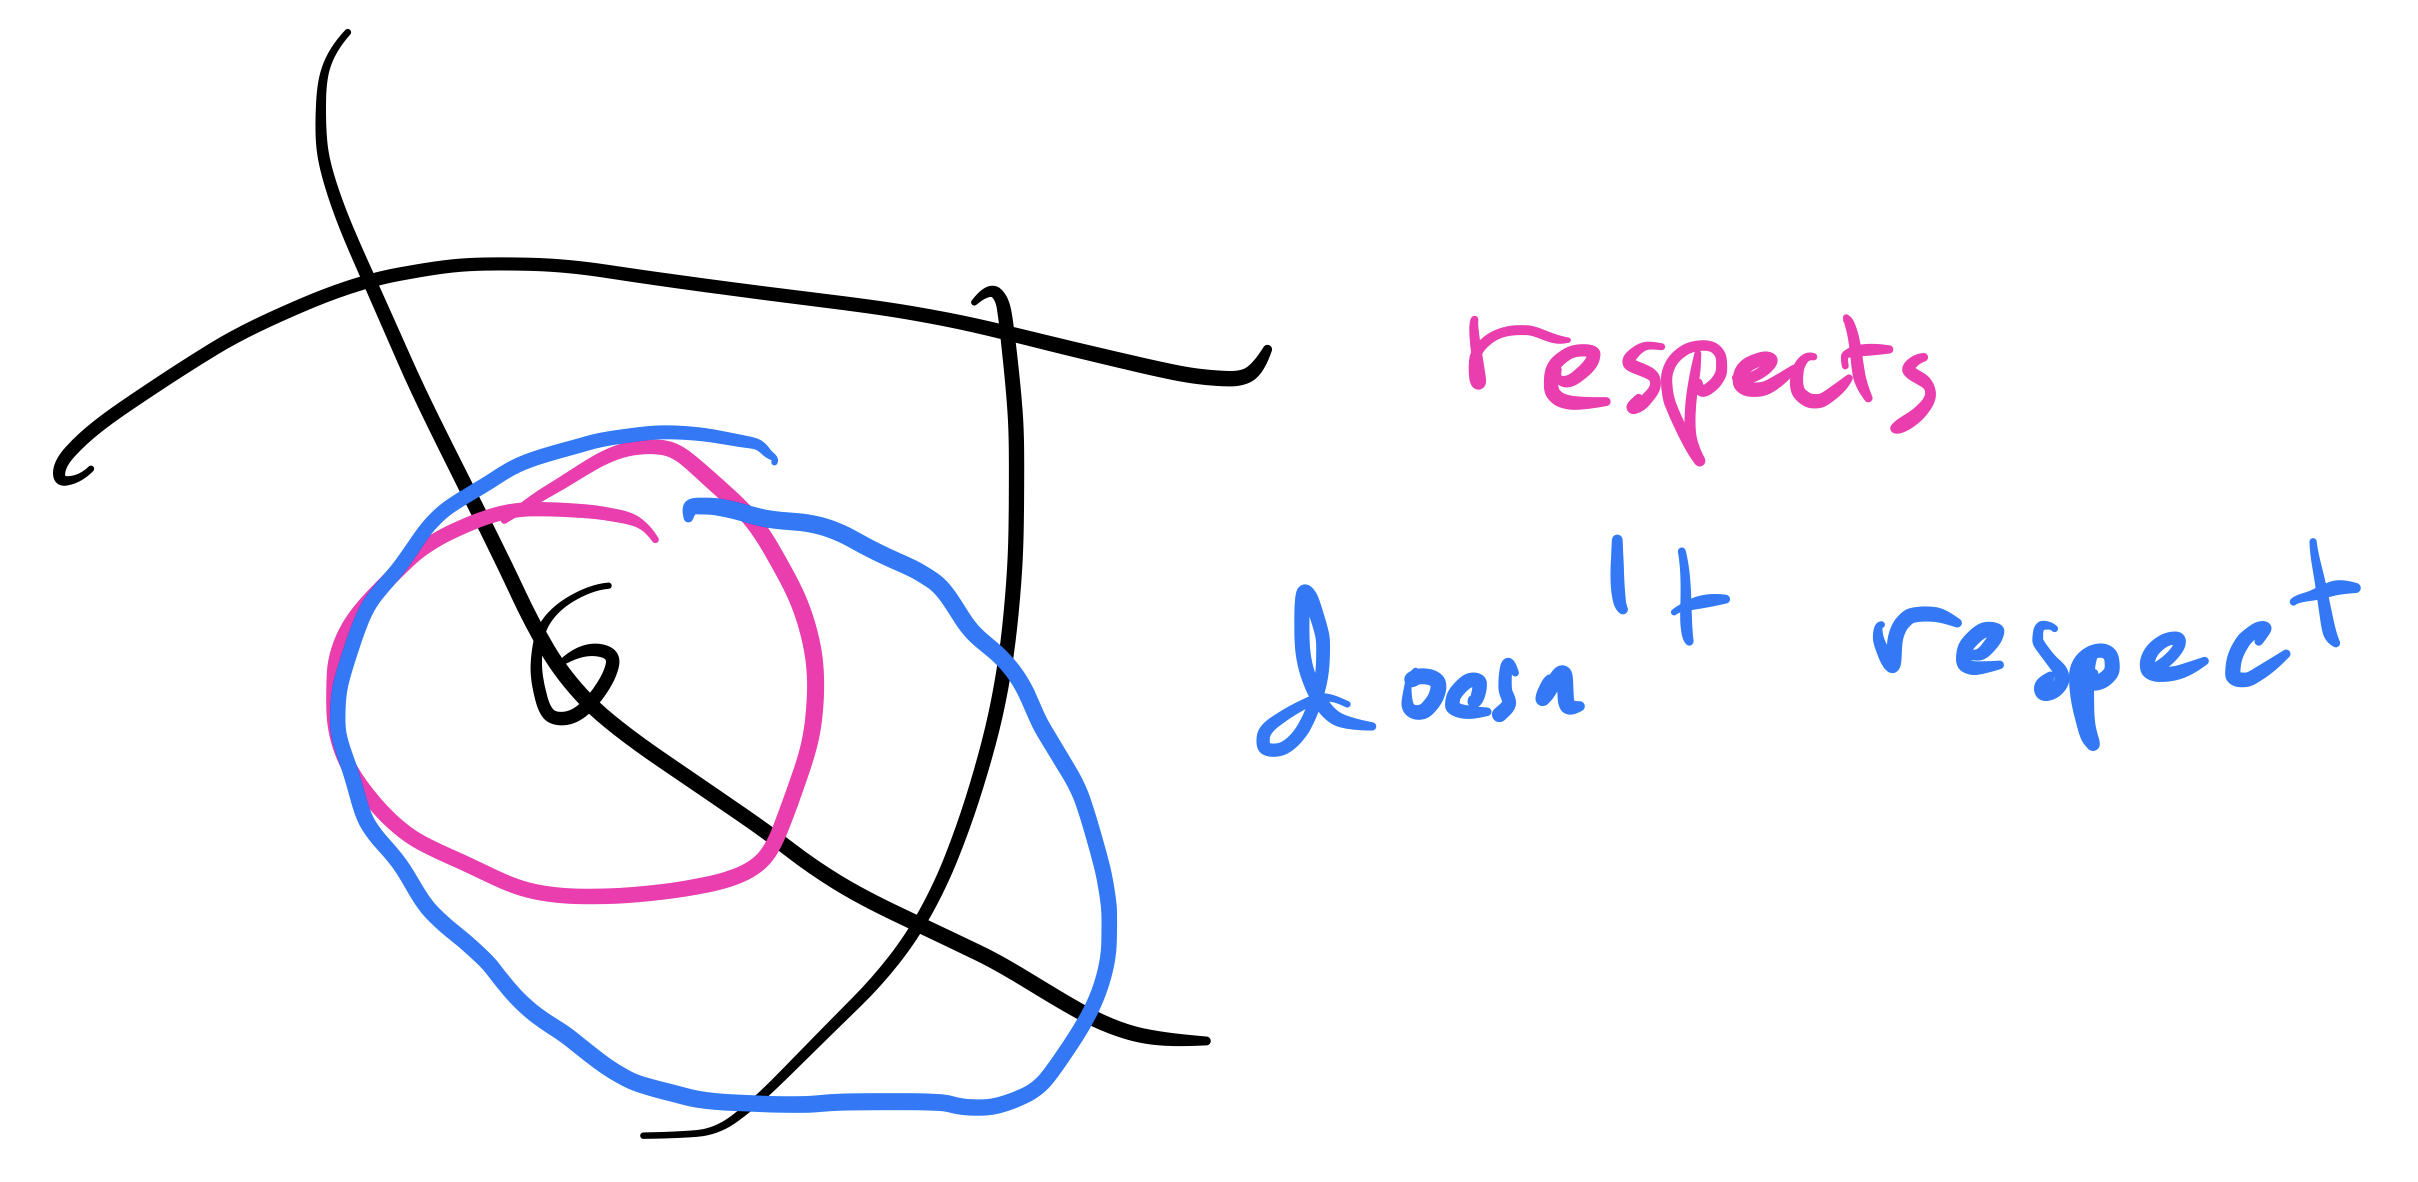 respects
doesn't respect